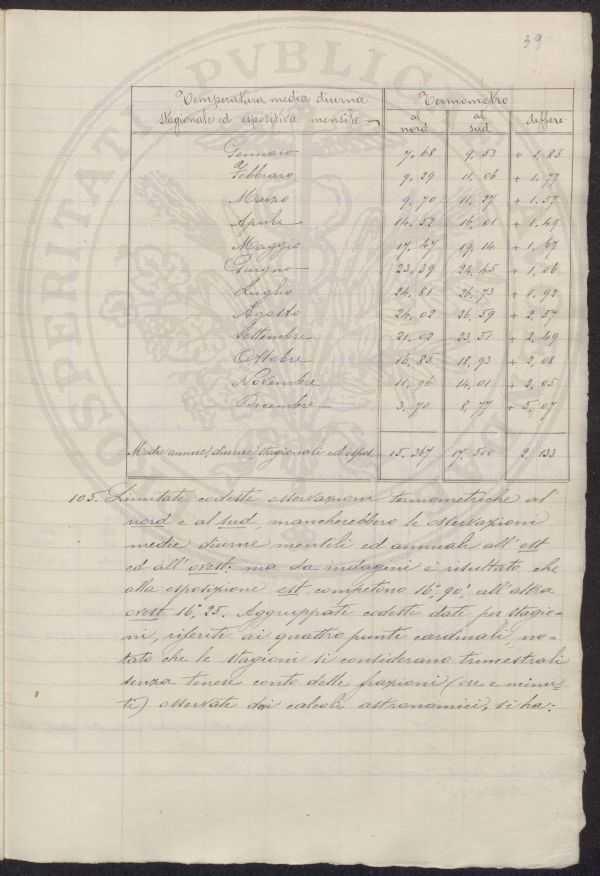 39
Temperatura media diurna Termometro
stagionale ed espositiva mensile al nord al sud differe
Gennaro 7,68 9,53 + 1,85
Febbraro 9,29 11,06 + 1,77
Marzo 9,70 11,27 + 1,57
Aprile 14,52 16,01 + 1,49
Maggio 17,47 19,14 + 1,67
Giugno 23,39 24,45 + 1,06
Luglio 24,81 26,73 + 1,92
Agosto 24,02 26,59 + 2,57
Settembre 21,02 23,51 + 2,49
Ottobre 16,85 18,93 + 2,08
Novembre 11,96 14,01 + 2,05
Dicembre 3,70 8,77 + 5,07
Medie annue, diurne, stagionali ed espos. 15,367 17,500 2,133
105. Limitate codeste osservazioni termometriche al
nord e al sud, mancherebbero le osservazioni
medie diurne mensili ed annuali all'est
ed all'ovest: ma da indagini è risultato che
alla esposizione est competono 16°,90', all'altra
ovest 16°,25. Aggruppati codesti dati per stagio-
ni, riferiti ai quattro punti cardinali, no-
tato che le stagioni si considerano trimestrali
senza tenere conto delle frazioni (ore e minu-
ti) osservate dai calcoli astronomici, si ha:
PVBLICA
OSPERITATI